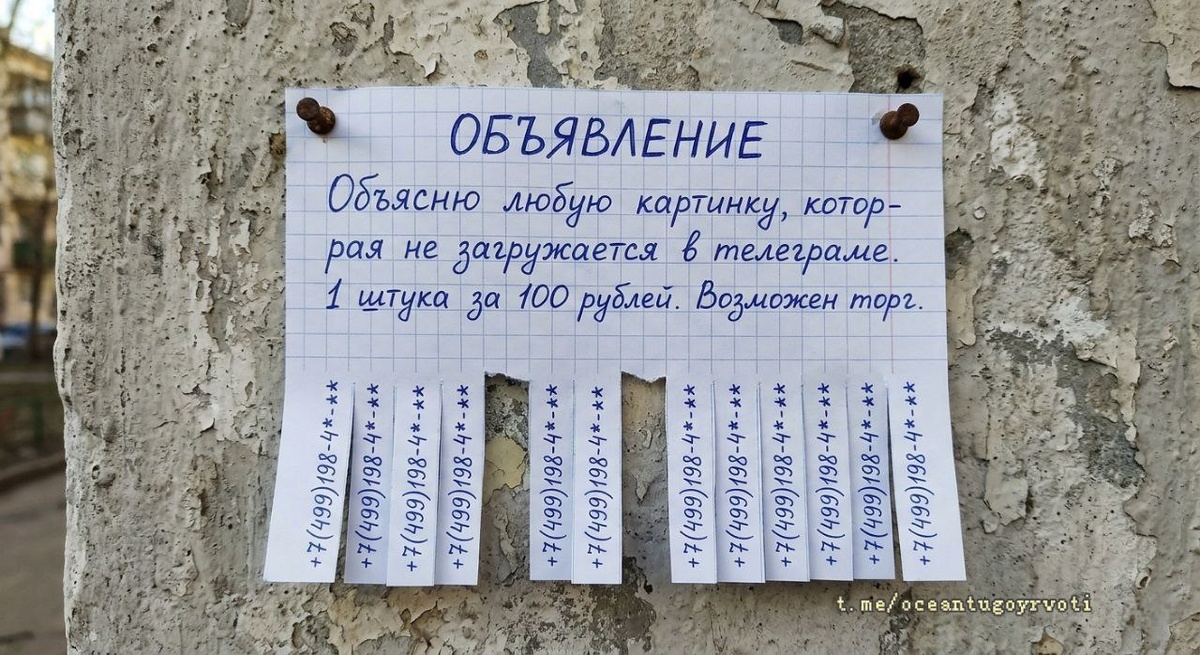 ОБЪЯВЛЕНИЕ
Объясню любую картинку, котор-
рая не загружается в телеграме.
1 штука за 100 рублей. Возможен торг.
+7(499)198-4*-**
+7(499)198-4*-**
+7(499)198-4*-**
+7(499)198-4*-**
+7(499)198-4*-**
+7(499)198-4*-**
+7(499)196-4*-**
+7(499)198-4*-**
+7(499)198-4*-**
+7(499)198-4*-**
+7(499)198-4*-**
+7(499)198-4*-**
t.me/oceantugoyrvoti